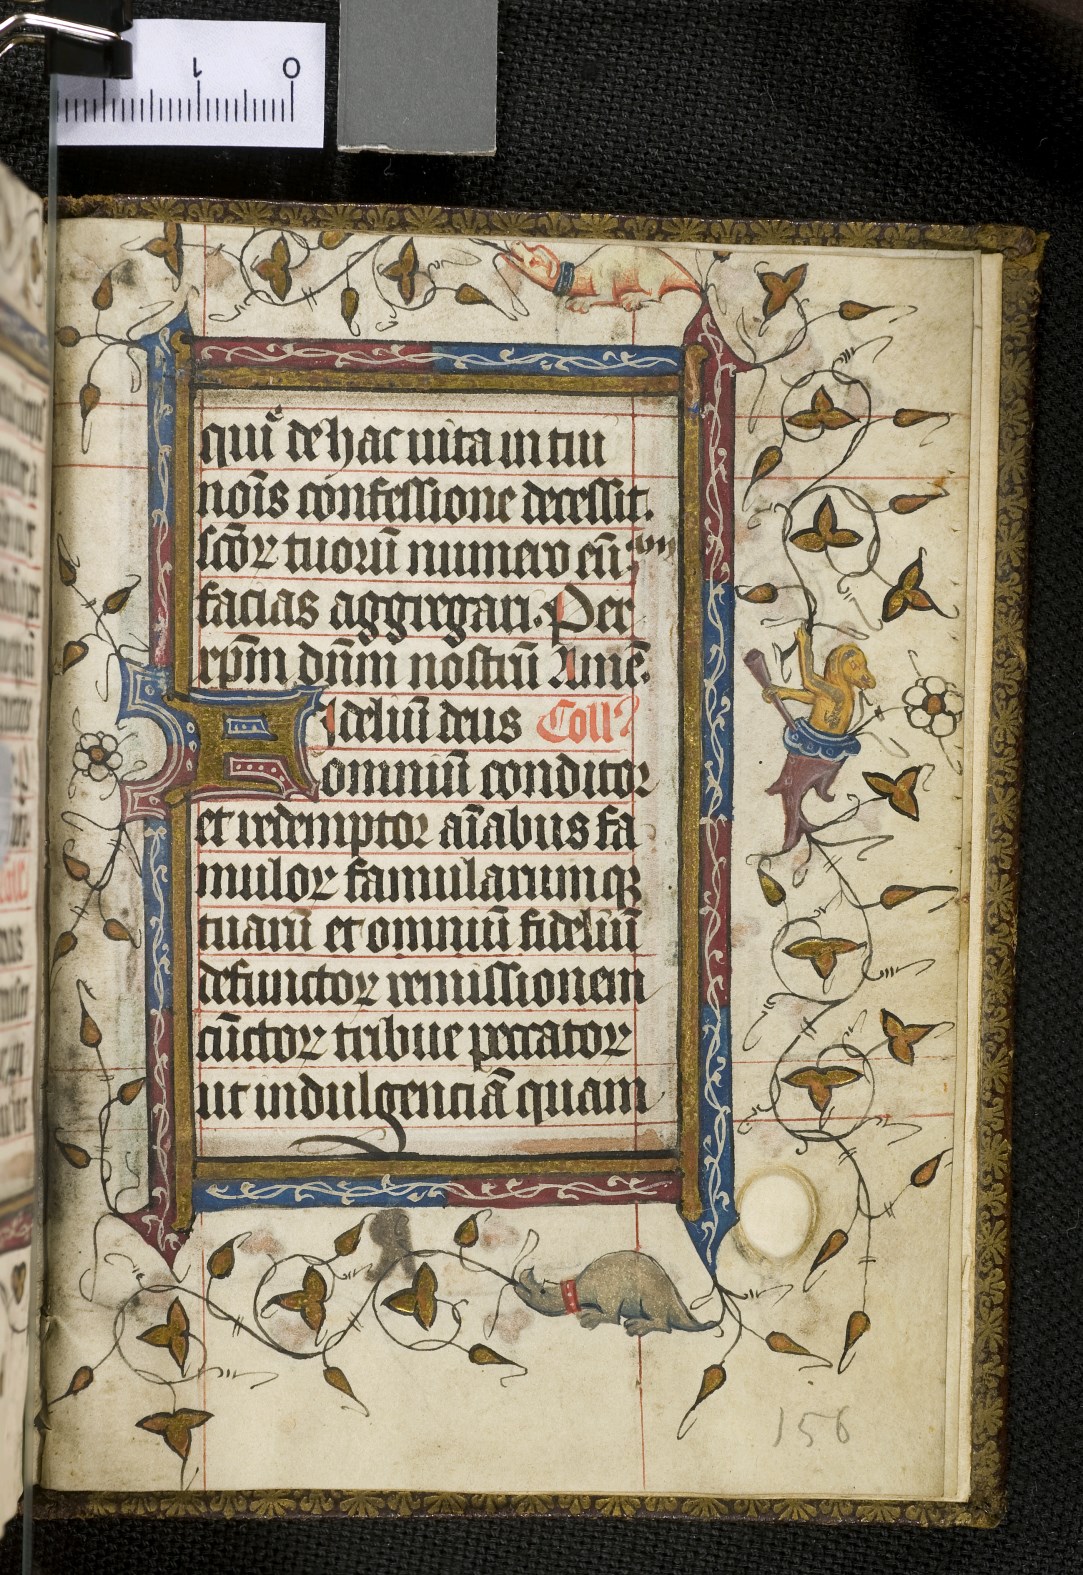 1 0
quū de hac uita in tui
noīs confessione decessit.
scōꝝ tuorū numero eū
facias aggregari. Per
xp̄m dn̄m nostrū Amē.
Fideliū deus Coll'
omniū conditor
et redemptor aīabus fa
muloꝝ famularumqꝫ
tuarū et omniū fideliū
defunctoꝝ remissionem
cūctoꝝ tribue peccatoꝝ
ut indulgenciā quam
156